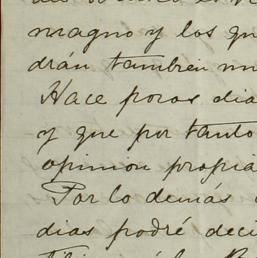 magno y los
drán tambien
Hace pocos dia
y que por tanto
opinion propia
Por lo demás
dias podré deci